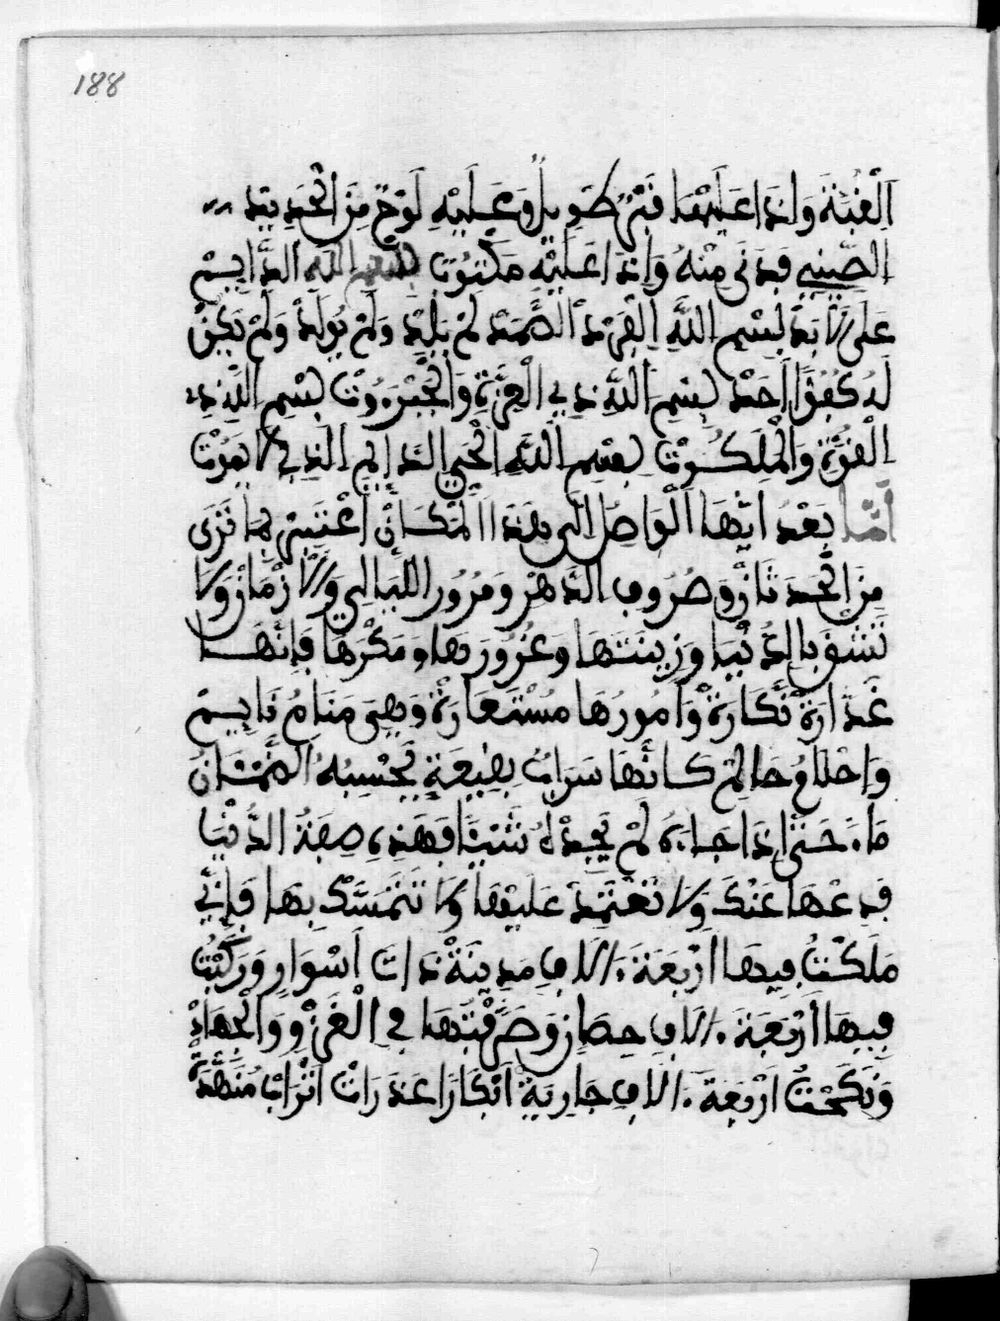 188
الْقُبَّةَ وَاِذَا عَلَيْهَا قَبْرٌ طَوِيلٌ وَعَلَيْهِ لَوْحٌ مِنَ الْحَدِيدِ
الصِّينِي فَدَنَى مِنْهُ وَاِذَا عَلَيْهِ مَكْتُوبٌ بِسْمِ اللهِ الدَّايِمْ
عَلَى الْاَبَدْ بِسْمِ اللَّهِ الْفَرْدْ الصَّمَدْ لَمْ يَلِدْ وَلَمْ يُولَدْ وَلَمْ يَكُنْ
لَهُ كُفُؤًا اَحَدْ بِسْمِ اللَّهِ ذِي الْعِزَّةِ وَالْجَبَرُوتْ بِسْمِ اللَّهِ ذِي
الْقُوَّةِ وَالْمَلَكُوتْ بِسْمِ اللَّهِ الْحَيِّ الدَّايِمِ الَّذِي لَا يَمُوتْ
اَمَّا بَعْدُ اَيُّهَا الْوَاصِلُ اِلَى هَذَا الْمَكَانْ اعْتَبِرْ بِمَا تَرَى
مِنَ الْحَدَثَانْ وَصُرُوفِ الدَّهْرْ وَمُرُورِ اللَّيَالِي وَالْاَزْمَانْ وَلَا
تَشَوَّفْ بِالدُّنْيَا وَزِينَتِهَا وَغُرُورِهَا وَمَكْرِهَا فَاِنَّهَا
غَدَّارَةٌ نَكَّارَةٌ وَاُمُورُهَا مُسْتَعَارَةٌ وَهِيَ مَنَامُ نَايِمْ
وَاحْلَامُ حَالِمْ كَاَنَّهَا سَرَابٌ بِقِيعَةٍ يَحْسِبُهُ الظَّمْئَانُ
مَاءً حَتَّى اِذَا جَاءَهُ لَمْ يَجِدْهُ شَيْئًا فَهَذِهِ صِفَةُ الدُّنْيَا
فَدَعْهَا عَنْكَ وَلَا تَعْتَمِدْ عَلَيْهَا وَلَا تَتَمَسَّكْ بِهَا فَاِنِّي
مَلَكْتُ فِيهَا اَرْبَعَةَ ءَالَافِ مَدِينَةْ ذَاتَ اَسْوَارٍ وَرَكِبْتُ
فِيهَا اَرْبَعَةَ ءَالَافِ حِصَانْ وَصَرَّفْتُهَا فِي الْغَزْوِ وَالْجِهَادْ
وَنَكَحْتُ اَرْبَعَةَ ءَالَافِ جَارِيَةْ اَبْكَارًا عَذَرَاتْ اَتْرَابْ مُنَهَّدَةْ